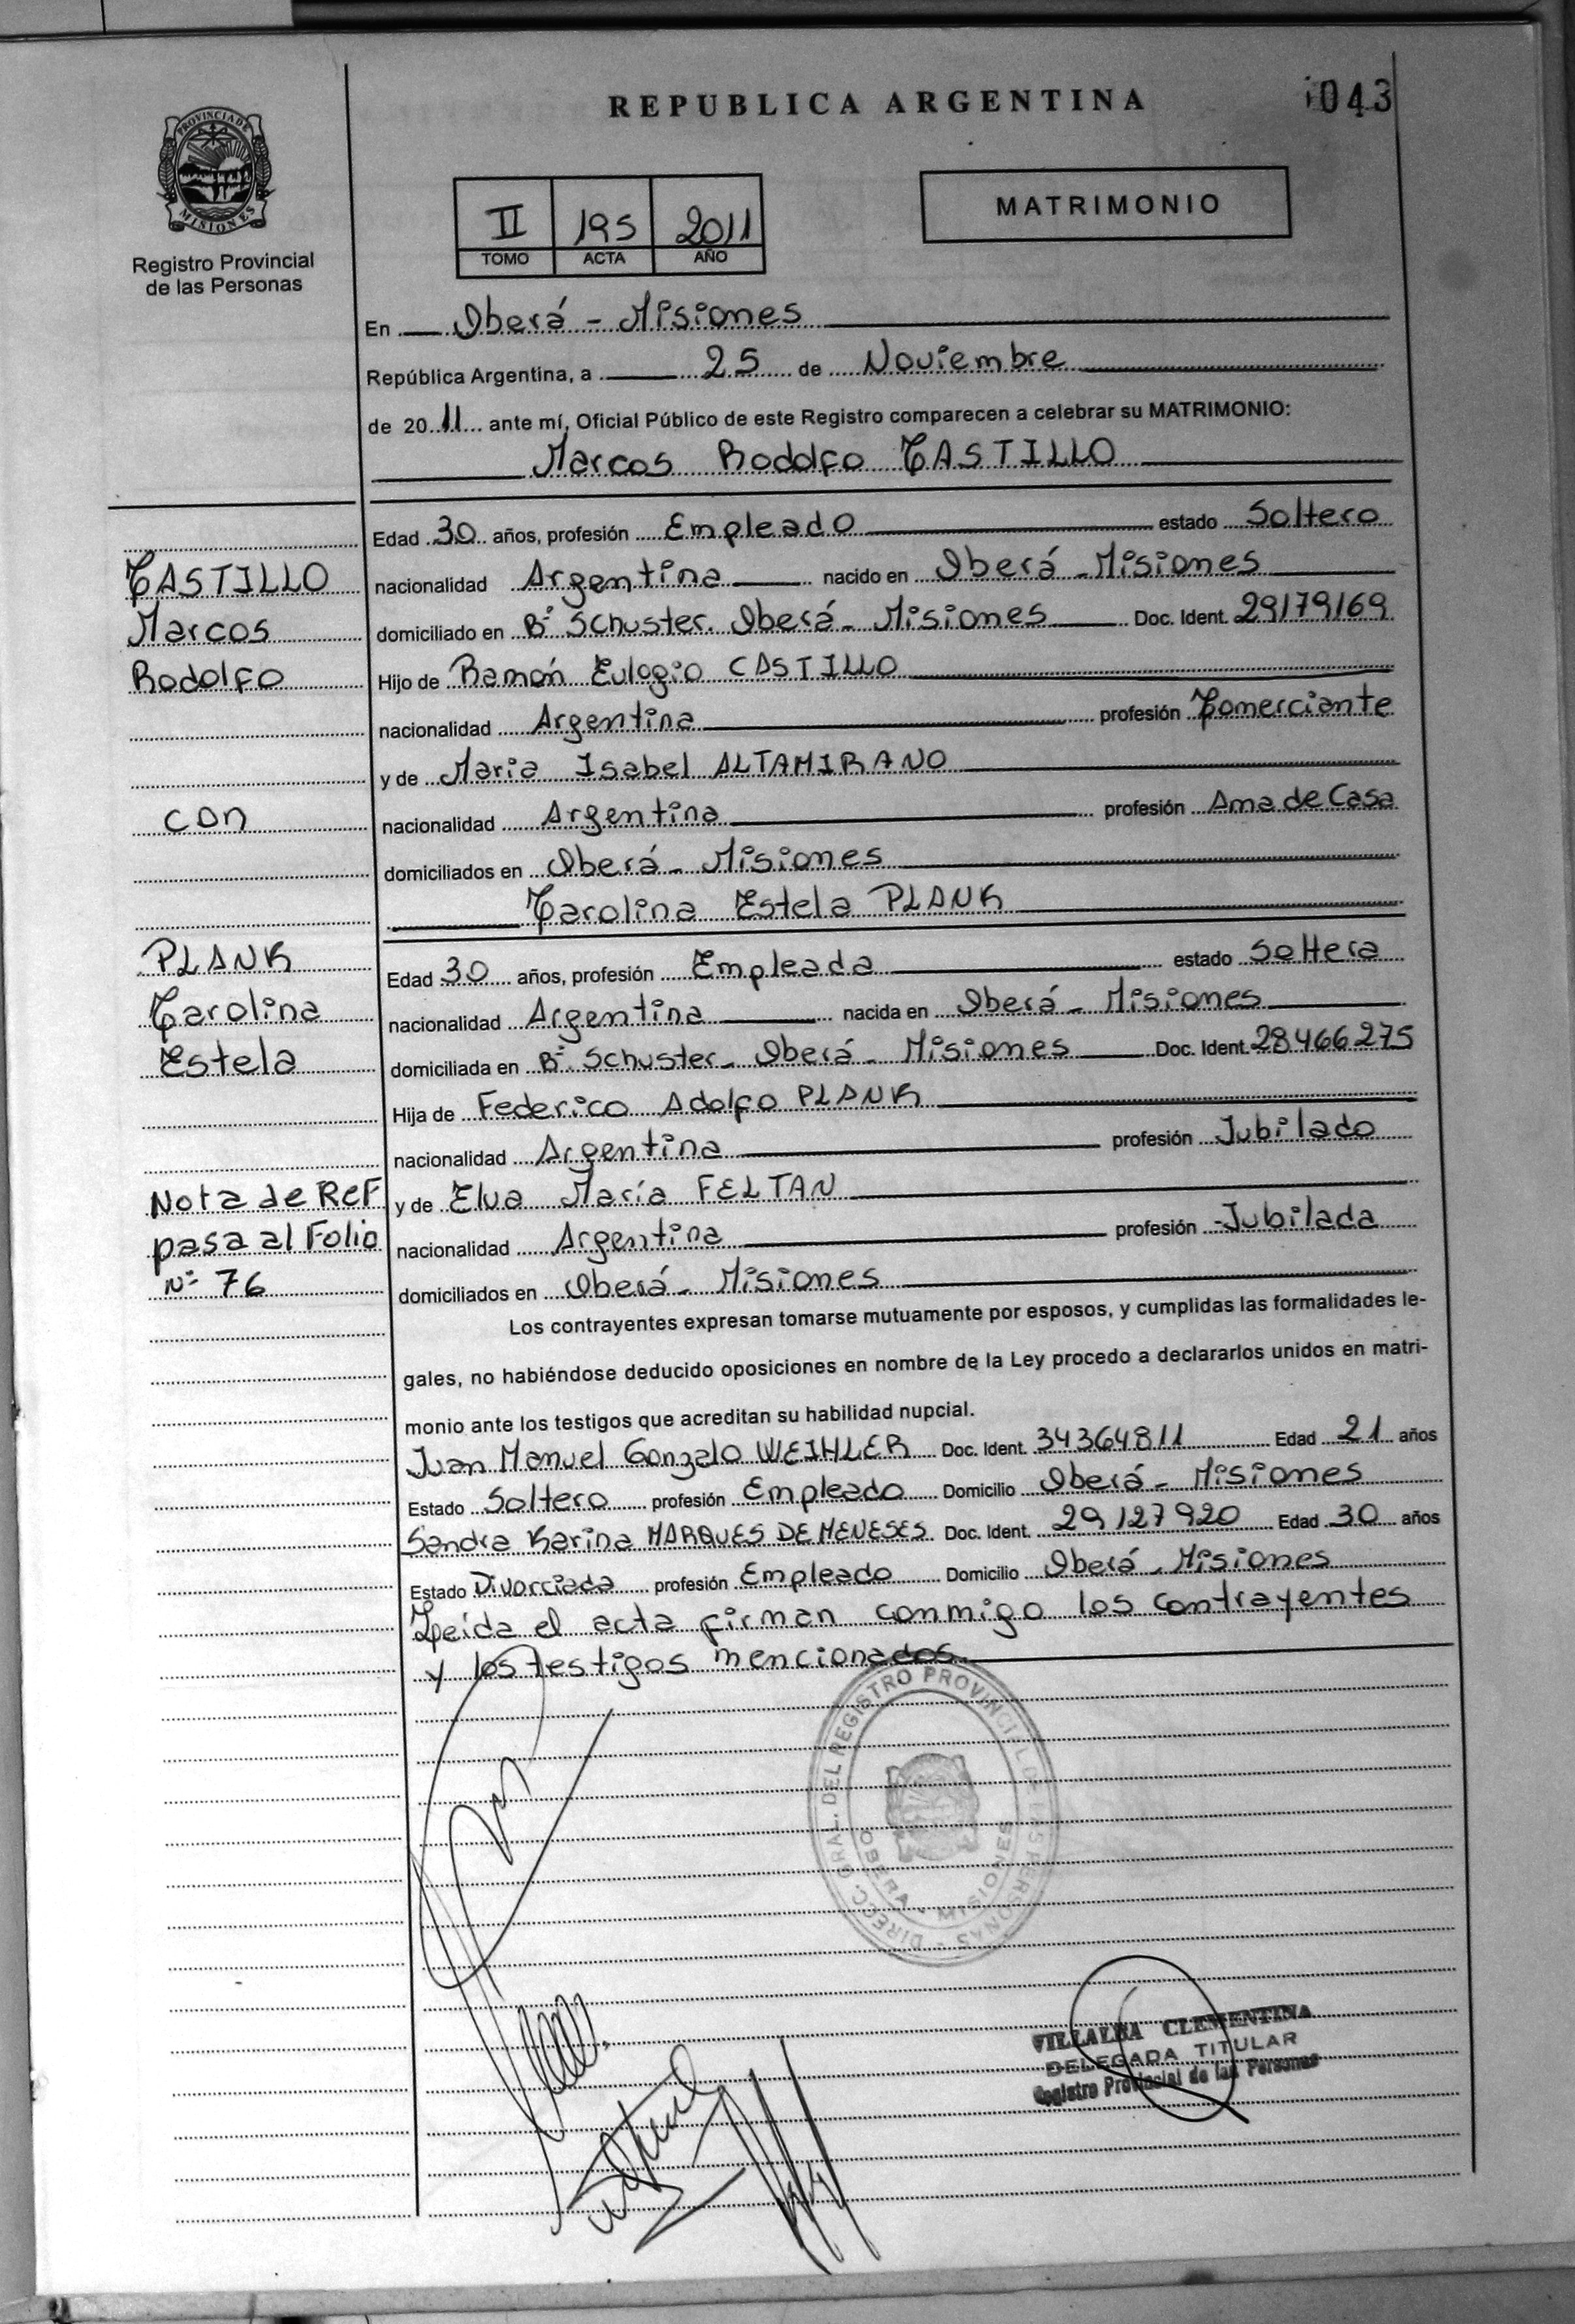 REPUBLICA ARGENTINA
043
PROVINCIA DE
MISIONES
Registro Provincial
de las Personas
II 195 2011
TOMO ACTA AÑO
MATRIMONIO
En Oberá - Misiones
República Argentina, a 25 de Noviembre
de 2011 ante mí, Oficial Público de este Registro comparecen a celebrar su MATRIMONIO:
Marcos Rodolfo CASTILLO
Edad 30 años, profesión Empleado estado Soltero
CASTILLO nacionalidad Argentina nacido en Oberá - Misiones
Marcos domiciliado en B° Schuster. Oberá - Misiones Doc. Ident. 29179169
Rodolfo Hijo de Ramón Eulogio CASTILLO
nacionalidad Argentina profesión Comerciante
y de Maria Isabel ALTAMIRANO
con nacionalidad Argentina profesión Ama de Casa
domiciliados en Oberá - Misiones
Carolina Estela PLANK
PLANK Edad 30 años, profesión Empleada estado Soltera
Carolina nacionalidad Argentina nacida en Oberá - Misiones
Estela domiciliada en B° Schuster - Oberá - Misiones Doc. Ident. 28466275
Hija de Federico Adolfo PLANK
nacionalidad Argentina profesión Jubilado
Nota de Ref y de Elva María FELTAN
pasa al Folio nacionalidad Argentina profesión Jubilada
N° 76 domiciliados en Oberá - Misiones
Los contrayentes expresan tomarse mutuamente por esposos, y cumplidas las formalidades le-
gales, no habiéndose deducido oposiciones en nombre de la Ley procedo a declararlos unidos en matri-
monio ante los testigos que acreditan su habilidad nupcial.
Juan Manuel Gonzalo WEIHLER Doc. Ident. 34364811 Edad 21 años
Estado Soltero profesión Empleado Domicilio Oberá - Misiones
Sandra Karina MARQUES DE MENESES Doc. Ident. 29127920 Edad 30 años
Estado Divorciada profesión Empleado Domicilio Oberá - Misiones
Leída el acta firman conmigo los contrayentes
y los testigos mencionados
DIRECC. GRAL. DEL REGISTRO PROVINCIAL DE LAS PERSONAS
OBERA - MISIONES
VILLALBA CLEMENTINA
DELEGADA TITULAR
Registro Provincial de las Personas